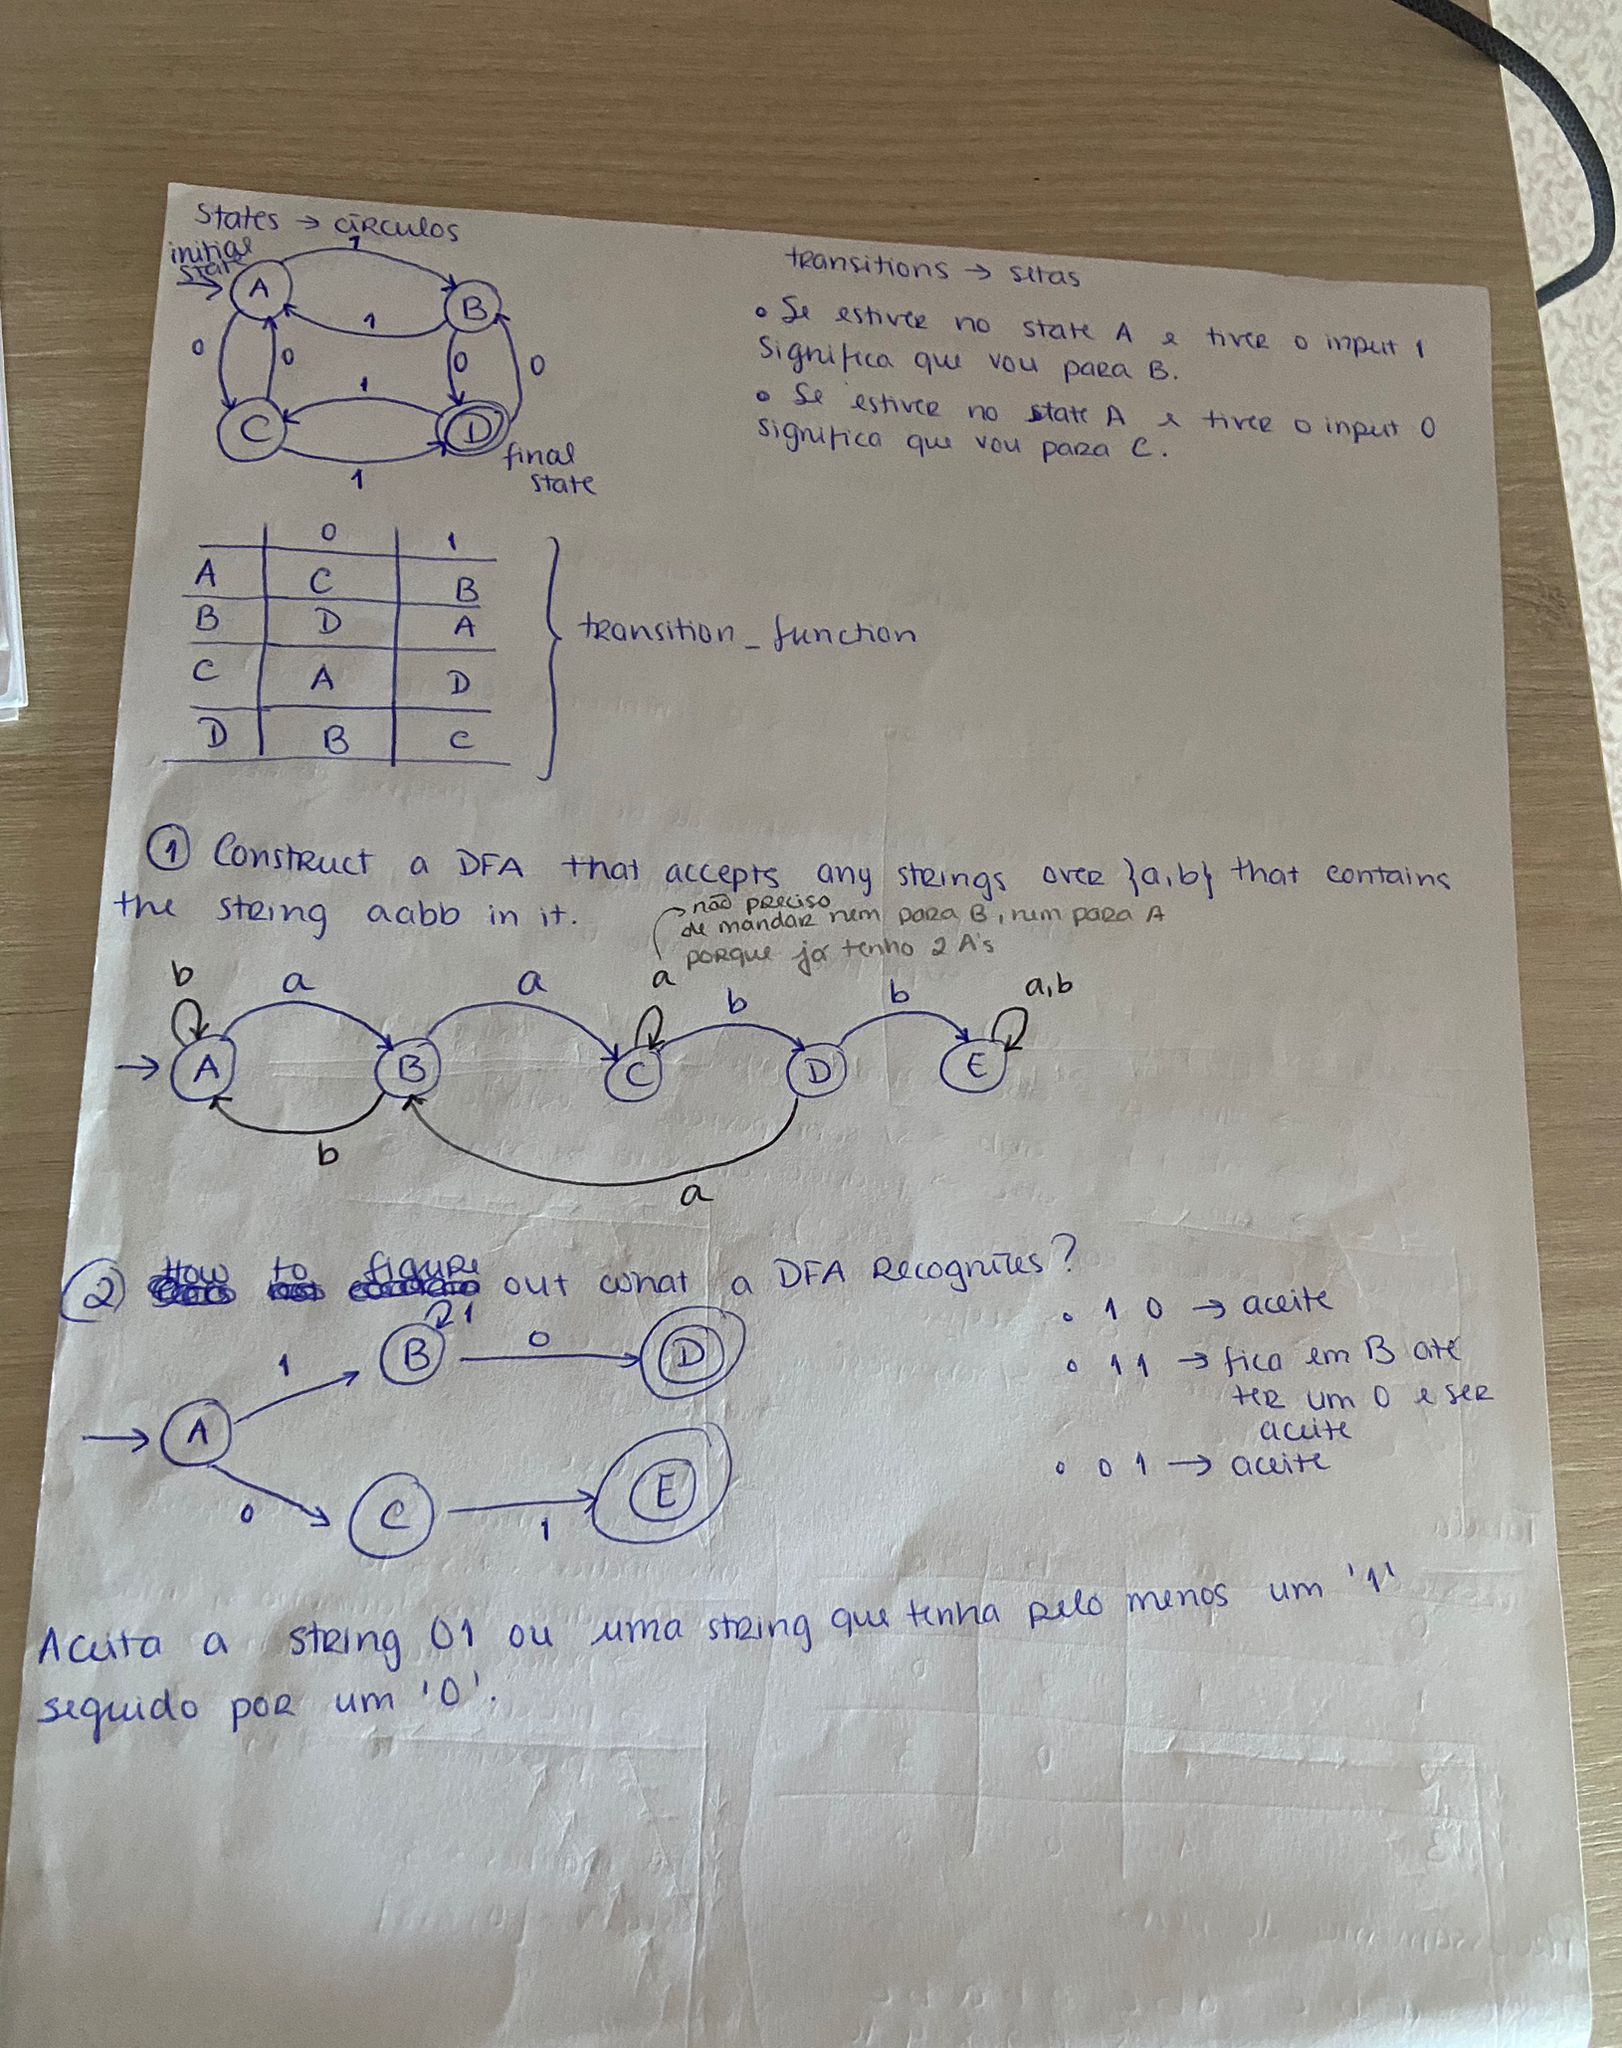 States → círculos
initial
state
→ A
1
B
1
0
0
0
0
1
C
D
1
final
state
transitions → setas
• Se estiver no state A e tiver o input 1
significa que vou para B.
• Se estiver no state A e tiver o input 0
significa que vou para C.
0 1
A C B
B D A
C A D
D B C
transition_function
① Construct a DFA that accepts any strings over {a,b} that contains
the string aabb in it.
→ não preciso
de mandar nem para B, nem para A
porque já tenho 2 A's
b a a a b b a,b
→ A B C D E
b
a
② How to figure out what a DFA Recognizes?
1
B 0 D
1
→ A
0
C 1 E
• 1 0 → aceite
• 1 1 → fica em B até
ter um 0 e ser
aceite
• 0 1 → aceite
Aceita a string 01 ou uma string que tenha pelo menos um '1'
seguido por um '0'.